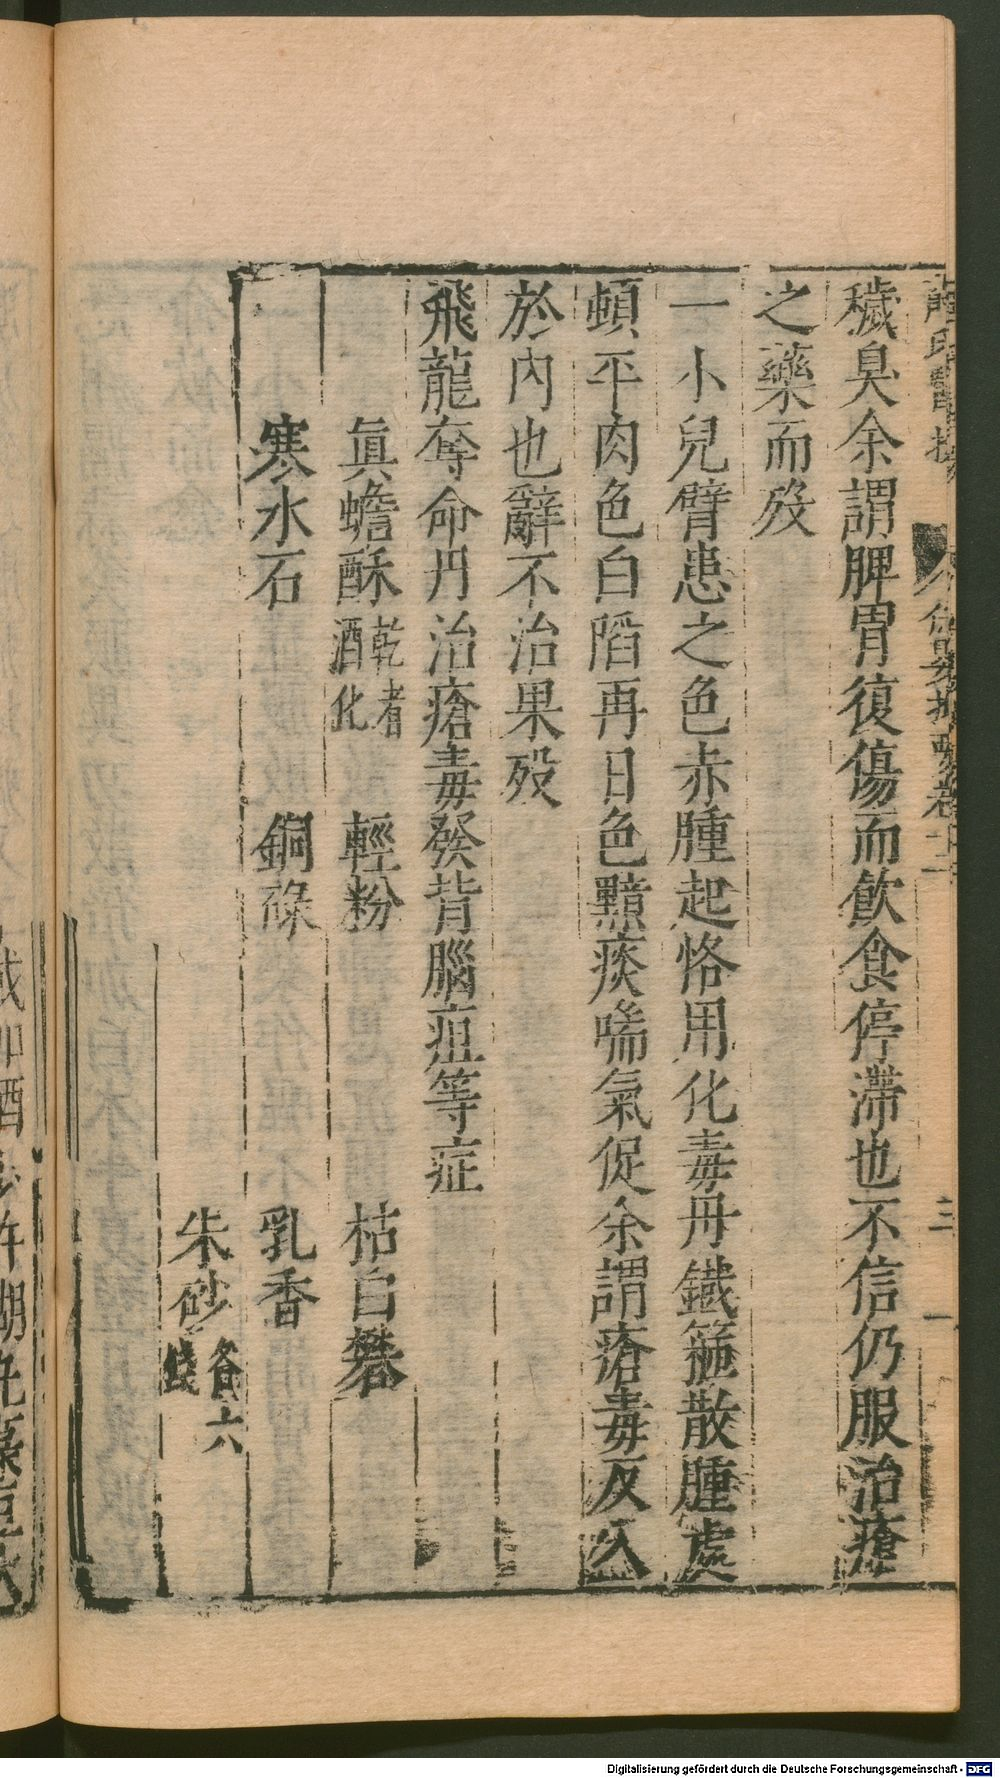 穢臭余謂脾胃復傷而飲食停滯也不信仍服治瘡
之藥而歿
一小兒臂患之色赤腫起恪用化毒丹鐵箍散腫處
頓平肉色白陷再日色黯痰喘氣促余謂瘡毒反入
於内也辭不治果歿
飛龍奪命丹治瘡毒發背腦疽等症
眞蟾酥乾者酒化 輕粉 枯白礬
寒水石 銅碌 乳香
朱砂各六錢
Digitalisierung gefördert durch die Deutsche Forschungsgemeinschaft - DFG